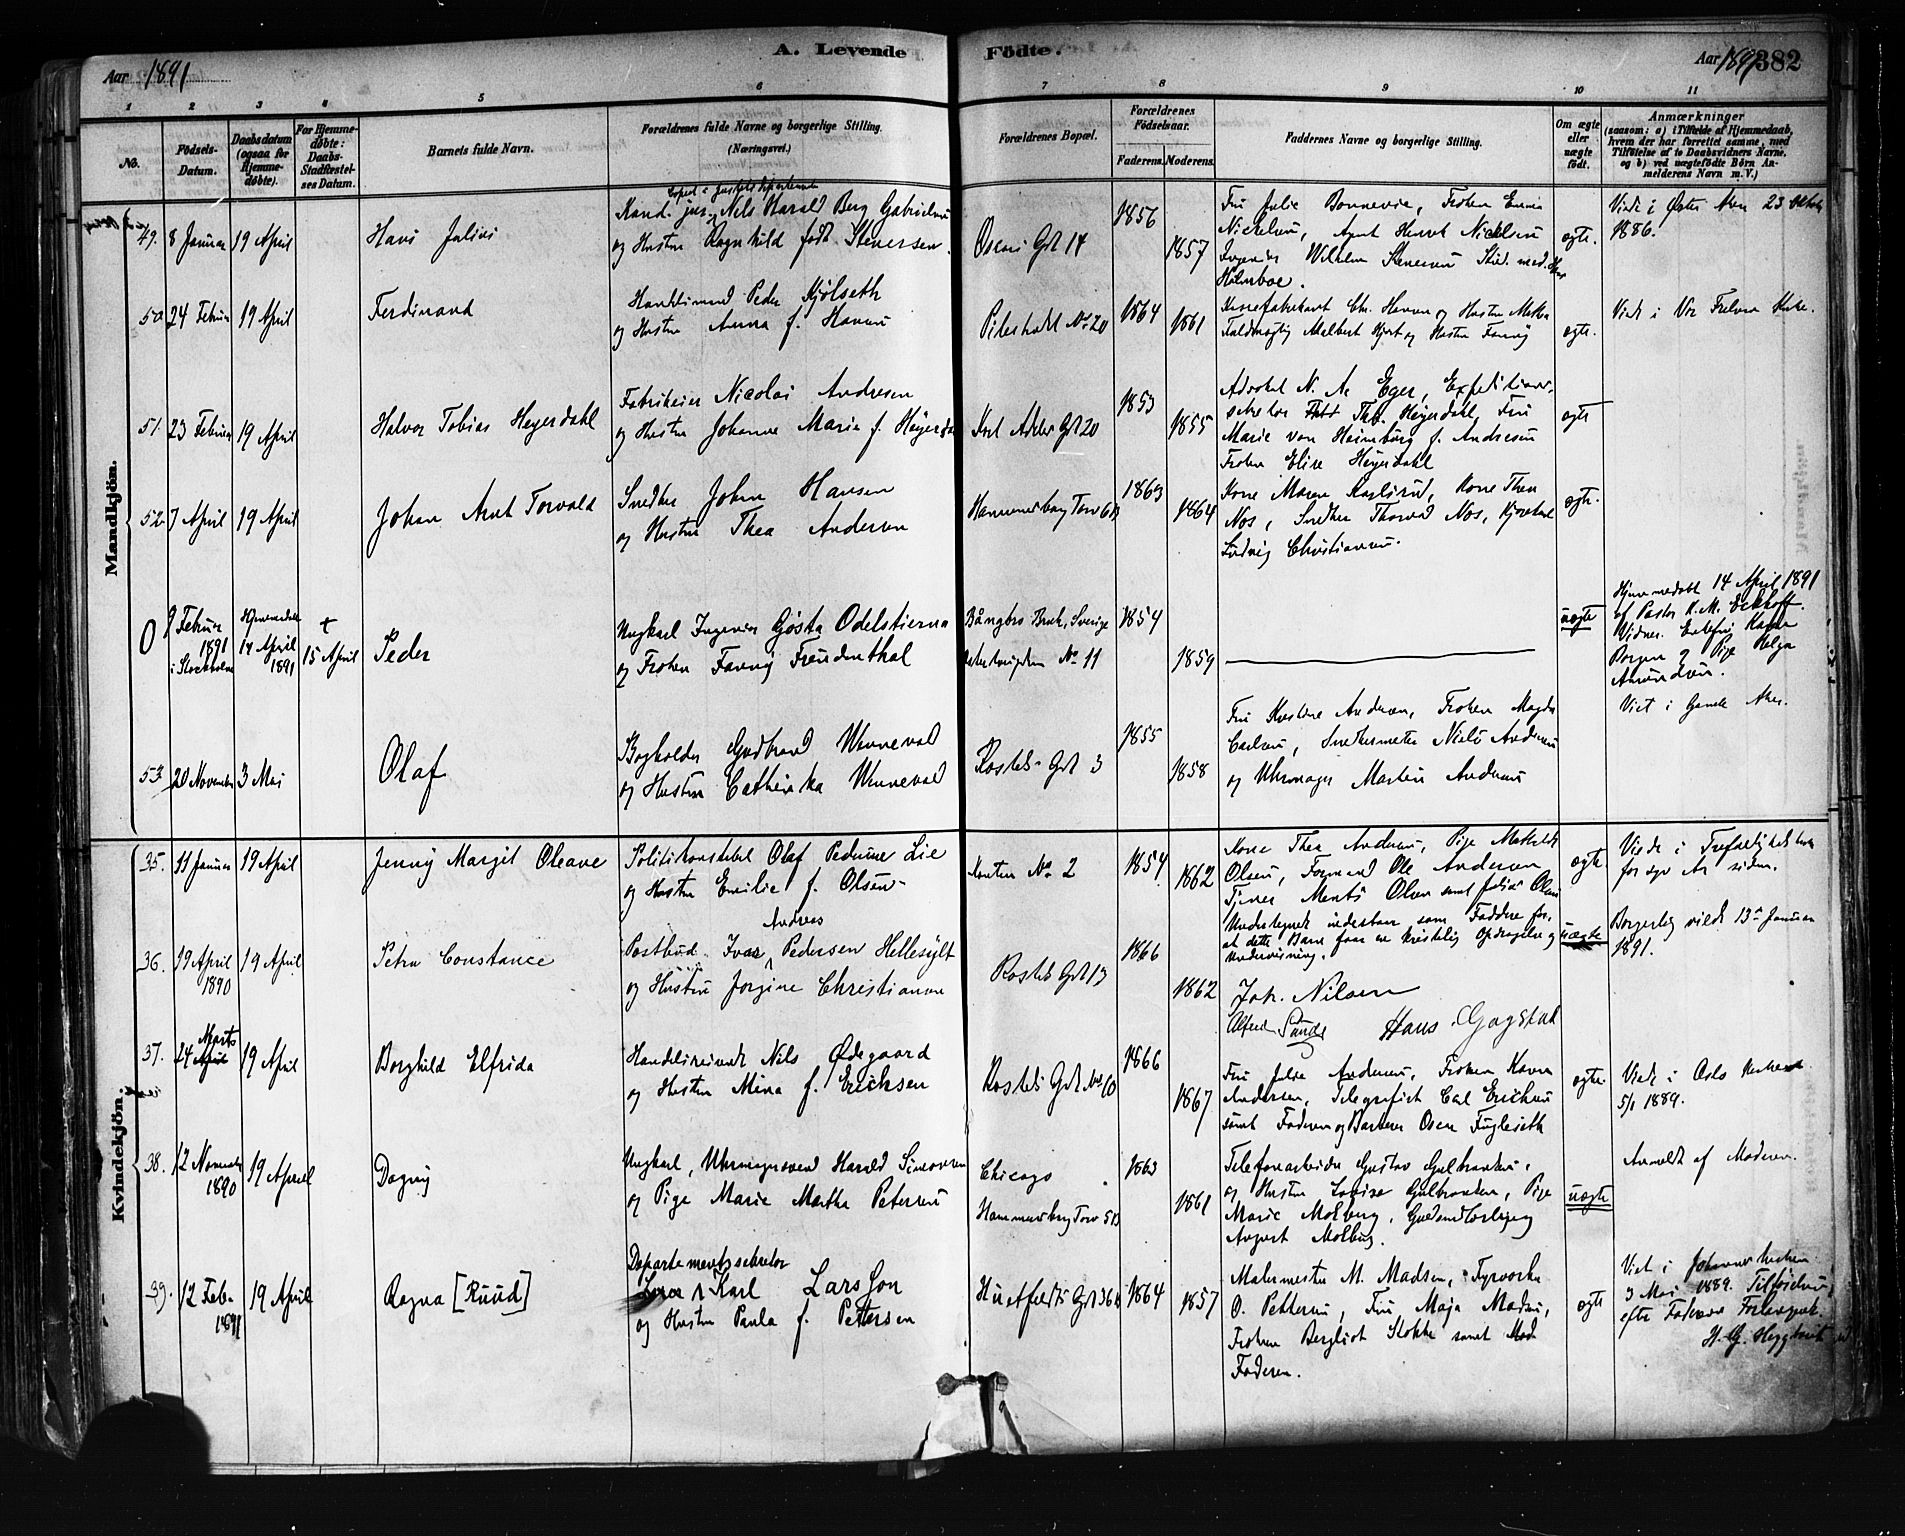 A. Levende Födte.
Aar 1891
Aar 1891 382
1 2 3 4 5 6 7 8 9 10 11
No.
Födsels-Datum.
Daabsdatum (ogsaa for Hjemmedöbte).
For Hjemmedöbte: Daabs-Stadfæstelses Datum.
Barnets fulde Navn.
Forældrenes fulde Navne og borgerlige Stilling.
(Næringsvei.)
Forældrenes Bopæl.
Forældrenes Födselsaar.
Faderens. Moderens.
Faddernes Navne og borgerlige Stilling.
Om ægte eller uægte födt.
Anmærkninger
(saasom: a) i Tilfælde af Hjemmedaab, hvem der har forrettet samme, med Tilföielse af to Daabsvidners Navne, og b) ved uægtefödte Börn Anmelderens Navn m. V.)
Mandkjön.
49. 8 Januar 19 April Hans Julius
Kand. jur. Nils Harald Berg Gabrielsen
og Hustru Ragnhild født Stenersen
Oscars Gd 14 1856 1857
Fru Julie Bonnevie, Frøken Emma
Nickelsen, Agent Henrik Nickelsen
Ingeniør Wilhelm Stenersen Stud. med. Hans
Holmboe.
ægte.
Viede i Østre Aker 23 Oktober
1886.
50 24 Februar 19 April Ferdinand
Handelsmand Peder Kjølseth
og Hustru Anna f. Haven
Pilestrædet No 20 1864 1861
og Hustru
Adelbert Hjort og Hustru Fanny
ægte.
Viede i Vor Frelsers Kirke.
51. 23 Februar 19 April Halvor Tobias Heyerdahl
Fabrikeier Nicolai Andresen
og Hustru Johanne Marie f. Heyerdahl
Kort Adeler Gd 20 1853 1855
Advokat N. A. Eger, Expeditions-
sekretær Thb. Heyerdahl, Fru
Marie von Heimburg f. Andresen
Frøken Elise Heyerdahl
ægte
52. 7 April 19 April Johan Arnt Torvald
Snedker Johan Hansen
og Hustru Thea Andersen
Hammersborg Torv 6 B 1863 1864
Kone Maren Karlsrud, Kone Thea
Nos, Snedker Thorvald Nos,
Ludvig Christiansen.
ægte.
0 9 Februar 1891 i Stockholm
Hjemmedøbt 14 April 1891
† 15 April Peder
Ungkarl Ingeniør Gösta Odelstierna
og Frøken Fanny Freudenthal
Bångbro Bruk, Sverige
No 11 1854 1859
uægte
Hjemmedøbt 14 April 1891
af Pastor K. M. Eckhoff.
Vidner: Enkefru Karen
Borgen og Pige Helga
Amundsen.
53 20 November 3 Mai Olaf
Bogholder Gudbrand Wenneval
og Hustru Cathinka Wenneval
Rosteds Gd 3 1855 1858
Fru Kristine Andersen, Frøken Magda
Carlsen, Snedkermester Niels Andersen
og Uhrmager Martin Andersen
Viet i Gamle Aker.
Kvindekjön.
35. 11 Januar 19 April Jenny Margit Oleave
Politikonstabel Olaf Pedersen Lie
og Hustru Emilie f. Olsen
No 2 1854 1862
Kone Thea Andersen, Pige Mathilde
Olsen, Formand Ole Andersen
Tjener Olsen samt Julius Olsen
ægte
Viede i Trefoldighedskirken
for syv Aar siden.
36. 19 April 1890 19 April Petra Constance
Andreas
Postbud Ivar Pedersen Hellesylt
og Hustru Jørgine Christiansen
Rosteds Gd 13 1866 1862
Undertegnede indestaar som Faddere for,
at dette Barn faar en kristelig Opdragelse og
Undervisning.
Joh. Nilsen
Alfred Sunde Hans Gogstad
uægte
Borgerlig viede 13de Januar
1891.
37. 24 Marts 19 April Borghild Elfrida
Handelsreisende Nils Ødegaard
og Hustru Mina f. Erichsen
Rosteds Gd No 10 1866 1867
Fru Julie Andersen, Frøken Karen
Andersen, Telegrafist Carl Erichsen
samt Faderen og Barberer Oscar Fugleseth
ægte.
Viede i Oslo Kirke
5/1 1889.
38. 12 November 1890 19 April Dagny
Ungkarl, Uhrmagersvend Harald Simonsen
og Pige Marie Martha Petersen
Chicago
Hammersborg Torv 5 B 1863 1861
Telefonarbeider Gustav Gulbrandsen,
og Hustru Lovise Gulbrandsen, Pige
Marie Molberg,
August Molberg.
uægte
Anmeldt af Moderen.
39. 12 Feb. 1891 19 April Ragna [Ruud]
Departementssekretær
Karl Larsson
og Hustru Paula f. Pettersen
Huitfeldts Gd 36 1864 1857
Malermester M. Madsen, Fyrvogter
O. Pettersen, Fru Maja Madsen,
Frøken Bergliot Stokke samt
Faderen.
ægte
Viet i Johanneskirken
3 Mai 1889. Tilføielsen
efter Faderens Forlangende.
H. G. Heggtveit